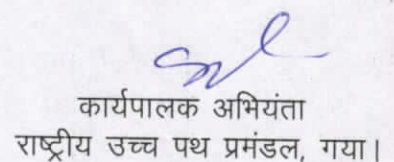 कार्यपालक अभियंता
राष्ट्रीय उच्च पथ प्रमंडल, गया।